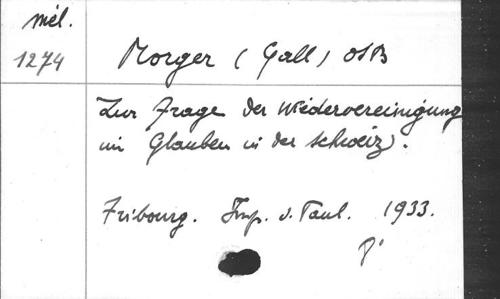 mél.
1274
Morger (Gall) OSB
Zur Frage der Wiedervereinigung
im Glauben in der Schweiz.
Fribourg. Imp. S. Paul. 1933.